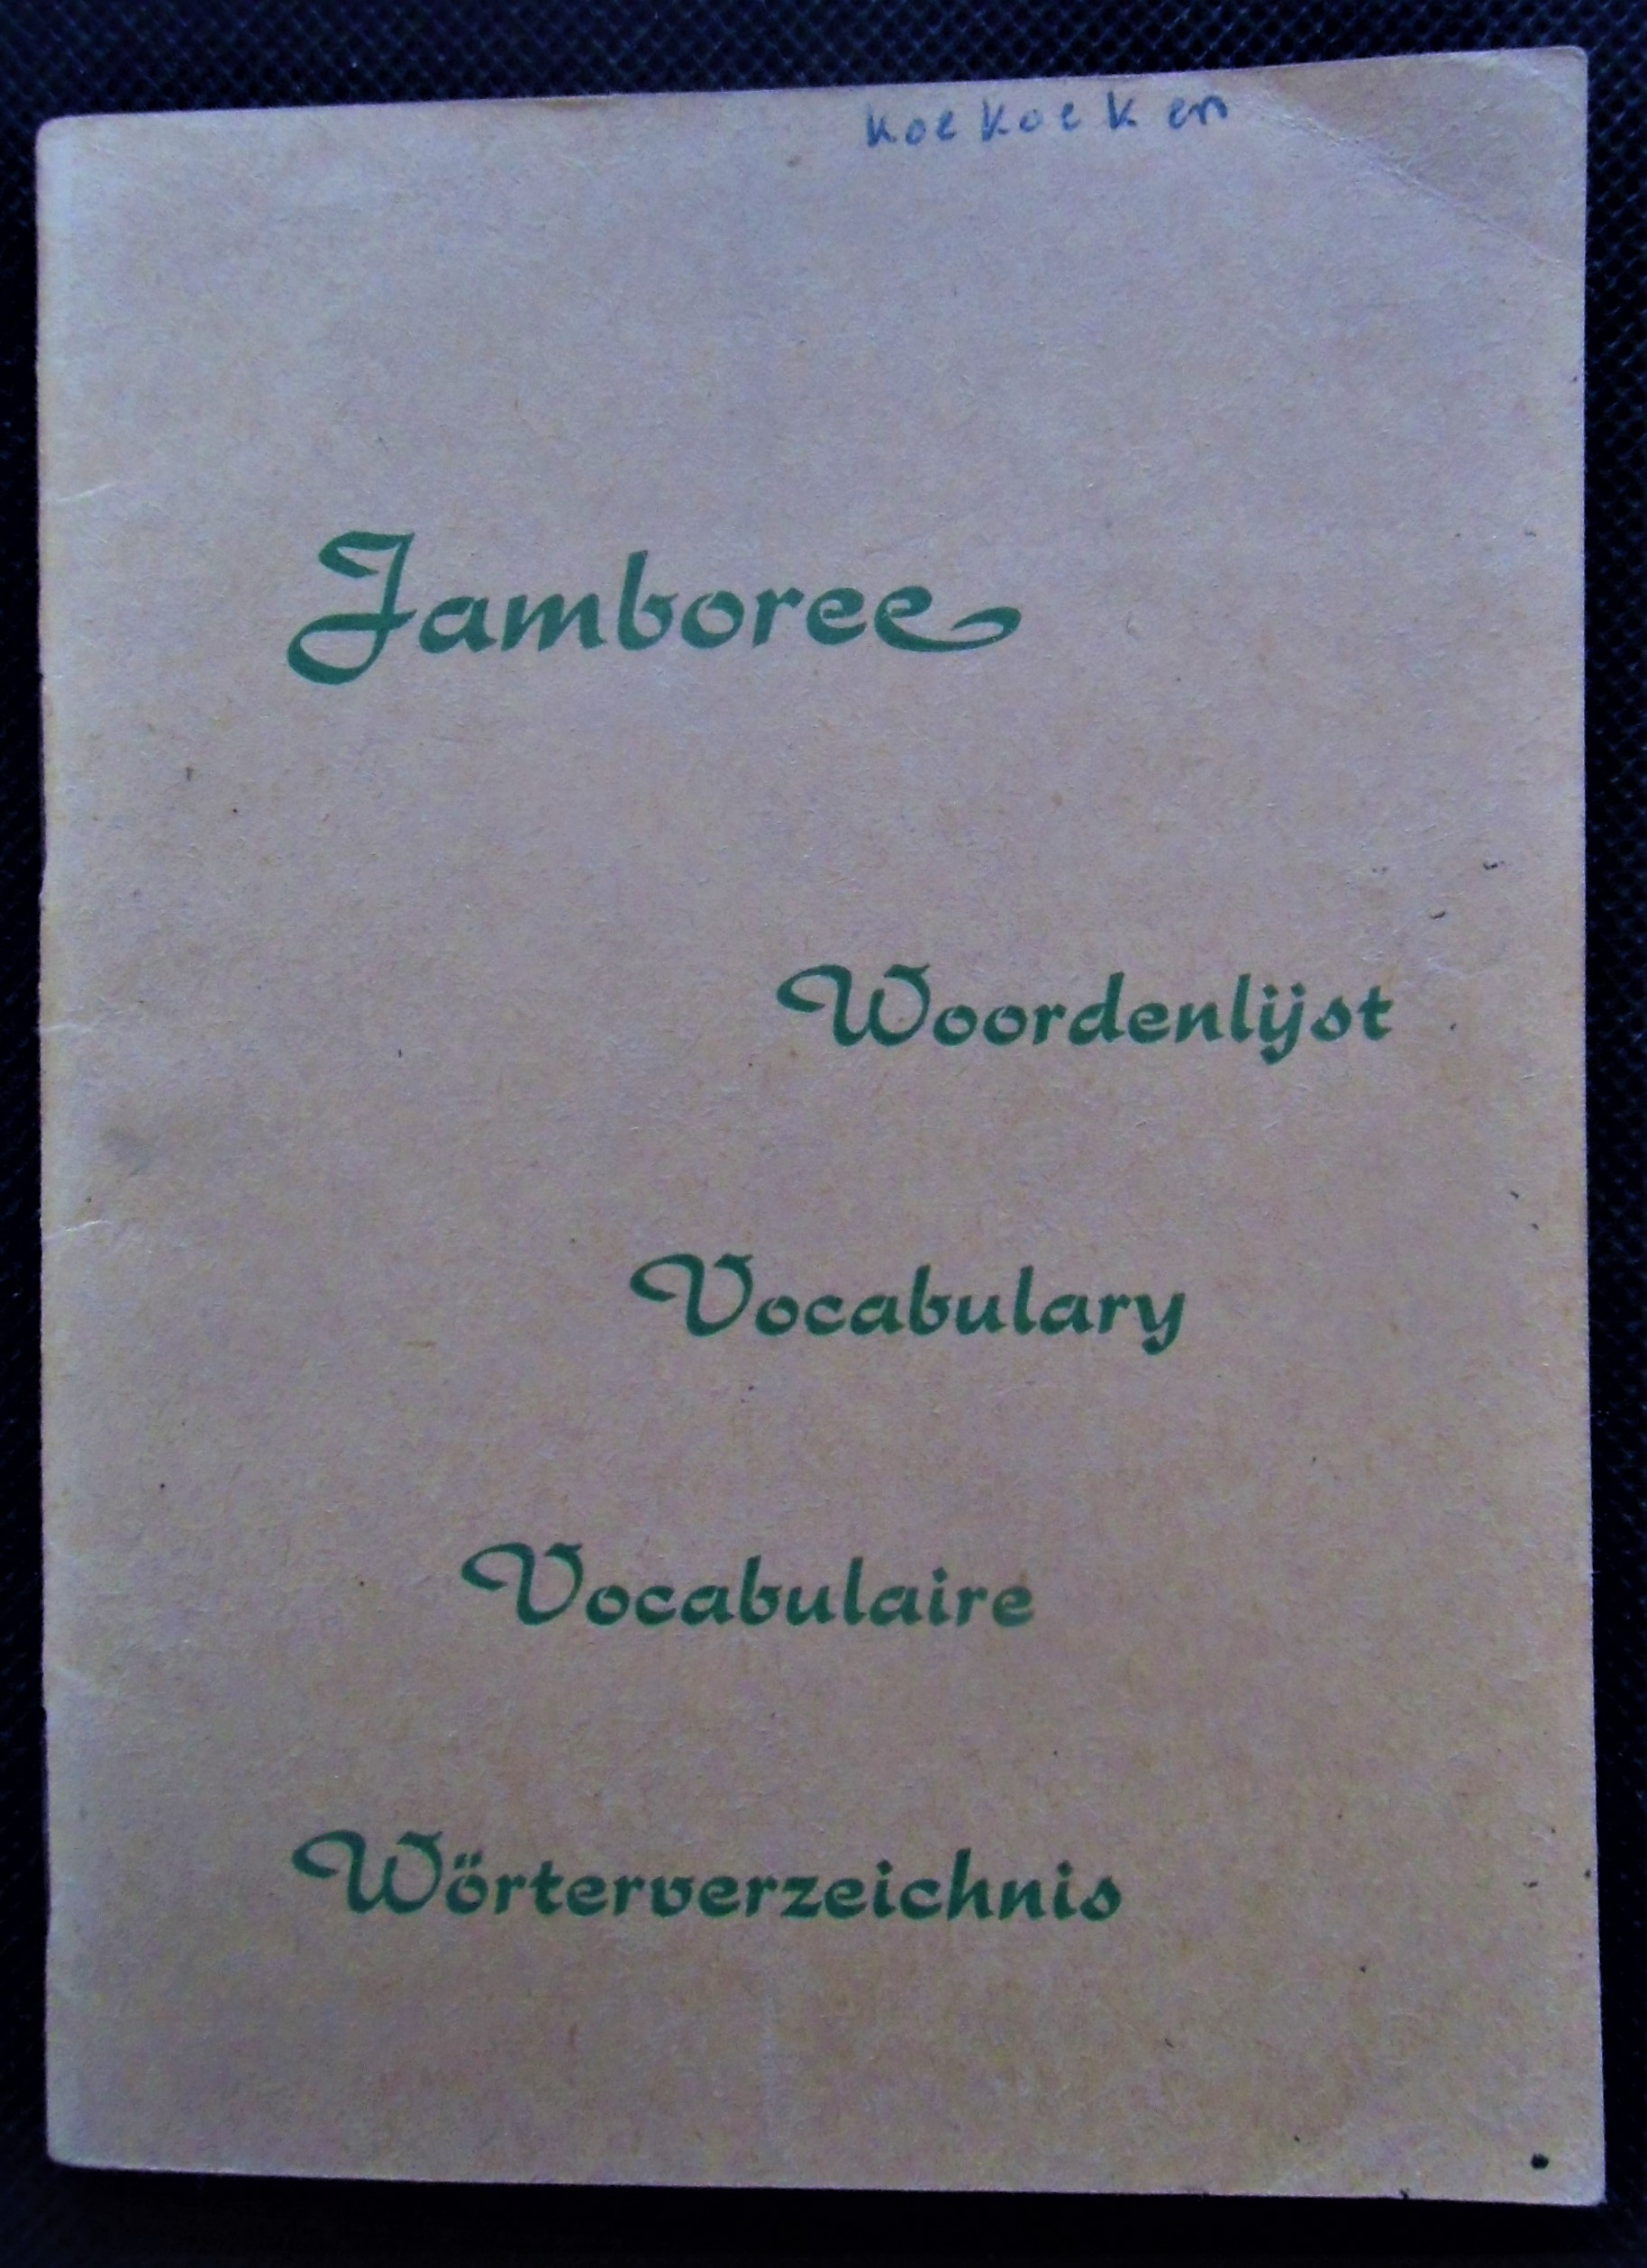 koekoeken
Jamboree
Woordenlijst
Vocabulary
Vocabulaire
Wörterverzeichnis